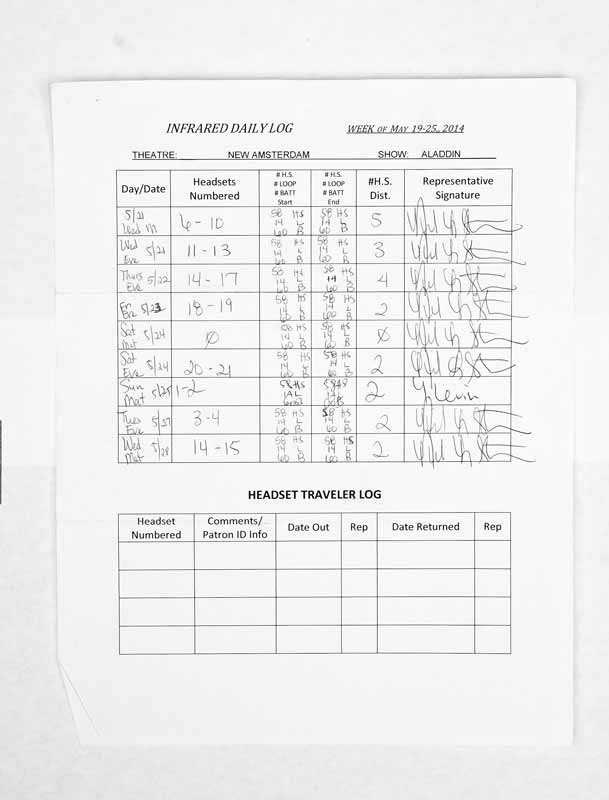 INFRARED DAILY LOG WEEK OF MAY 19-25, 2014
THEATRE: NEW AMSTERDAM SHOW: ALADDIN
Day/Date Headsets Numbered # H.S. # LOOP # BATT Start # H.S. # LOOP # BATT End #H.S. Dist. Representative Signature
5/21 Wed M 6-10 58 HS 14 L 60 B 58 HS 14 L 60 B 5
Wed Eve 5/21 11-13 58 HS 14 L 60 B 58 HS 14 L 60 B 3
Thurs Eve 5/22 14-17 58 HS 14 L 60 B 58 HS 14 L 60 B 4
Fri Eve 5/23 18-19 58 HS 14 L 60 B 58 HS 14 L 60 B 2
Sat Mat 5/24 Ø 58 HS 14 L 60 B 58 HS 14 L 60 B Ø
Sat Eve 5/24 20-21 58 HS 14 L 60 B 58 HS 14 L 60 B 2
Sun Mat 5/25 1-2 58HS 14L 58HS 2
Tues Eve 5/27 3-4 58 HS 14 L 60 B 58 HS 14 L 60 B 2
Wed Mat 5/28 14-15 58 HS 14 L 60 B 58 HS 14 L 60 B 2
HEADSET TRAVELER LOG
Headset Numbered Comments/ Patron ID Info Date Out Rep Date Returned Rep